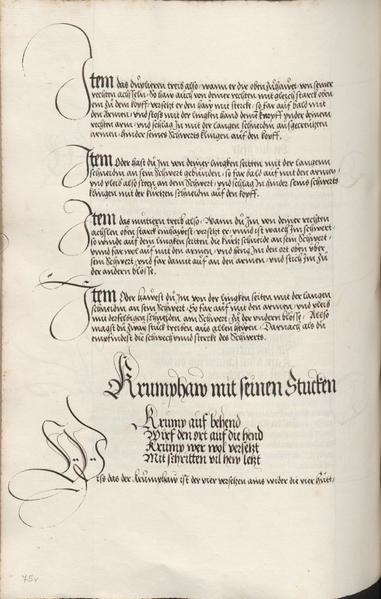 Item das duplieren treib also / wann er dir oben zu hawt / von seiner
rechten achseln / So haw auch von deiner rechten mit gleich starck oben
ein zu dem kopff / versetzt er den haw mit sterck / so far auf bald mit
den armen / vnd stoß mit der lingken hand deinen knopff vnder deinen
rechten arm / vnd schlag In mit der langen schneidn ausgereckten
armen / hinder seines schwerts klingen auf den kopff.
Item Oder hast du Im von deiner lingken seitten mit der langenn
schneidn an sein schwert gebunden / so far bald auf mit den armen /
vnd pleib also steen an dem schwert / vnd schlag In hinder seins schwerts
klingen mit der kurtzen schneidn auf den kopff.
Item das mutiern treib also / Wann du Im von deiner rechten
achseln oben starck einhawest / versetzt er / vnnd ist waich Im schwert /
so winde auf dein lingken seitten die kurtz schneide an sein schwert /
vnd far wol auf mit den armen / vnd heng Im den ort oben vber
sein schwert / vnd far damit auf an den armen / vnd stich Im zu
der andern blosse.
Item Oder hawest du Im von der lingken seiten mit der langen
schneidn an sein schwert / So far auf mit den armen / vnd pleib
mit derselbigen schneiden am schwert / zu der vndern blosse / Allso
magst du zway stuck treiben aus allen hewen / Darnach als du
empfindest die schwech vnnd sterck des schwerts.
Krumphaw mit seinen Stucken
Krump auf behend
Wirf den ort auf die hend
Krump wer wol versetzt
Mit schritten vil hew letzt
Wiso das der krumphaw ist der vier versetzen ains wider die vier hutt /
75v